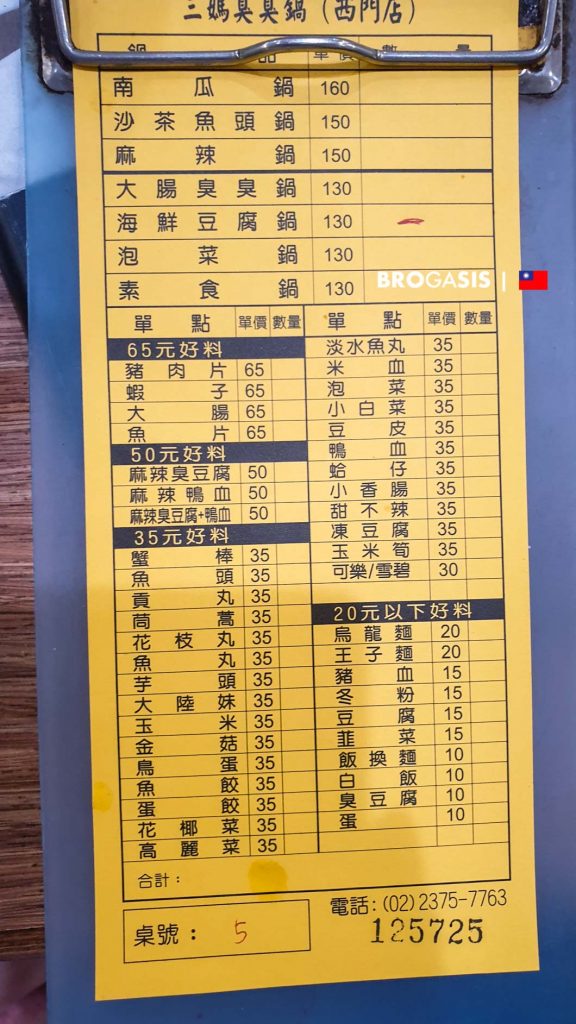 三媽臭臭鍋(西門店)
鍋 品 單價 數 量
南瓜鍋 160
沙茶魚頭鍋 150
麻辣鍋 150
大腸臭臭鍋 130
海鮮豆腐鍋 130
泡菜鍋 130
素食鍋 130
BROGASIS |
單點 單價 數量
65元好料
豬肉片 65
蝦子 65
大腸 65
魚片 65
50元好料
麻辣臭豆腐 50
麻辣鴨血 50
麻辣臭豆腐+鴨血 50
35元好料
蟹棒 35
魚頭 35
貢丸 35
茼蒿 35
花枝丸 35
魚丸 35
芋頭 35
大陸妹 35
玉米 35
金菇 35
鳥蛋 35
魚餃 35
蛋餃 35
花椰菜 35
高麗菜 35
單點 單價 數量
淡水魚丸 35
米血 35
泡菜 35
小白菜 35
豆皮 35
鴨血 35
蛤仔 35
小香腸 35
甜不辣 35
凍豆腐 35
玉米筍 35
可樂/雪碧 30
20元以下好料
烏龍麵 20
王子麵 20
豬血 15
冬粉 15
豆腐 15
韮菜 15
飯換麵 10
白飯 10
臭豆腐 10
蛋 10
合計:
桌號: 5
電話:(02)2375-7763
125725